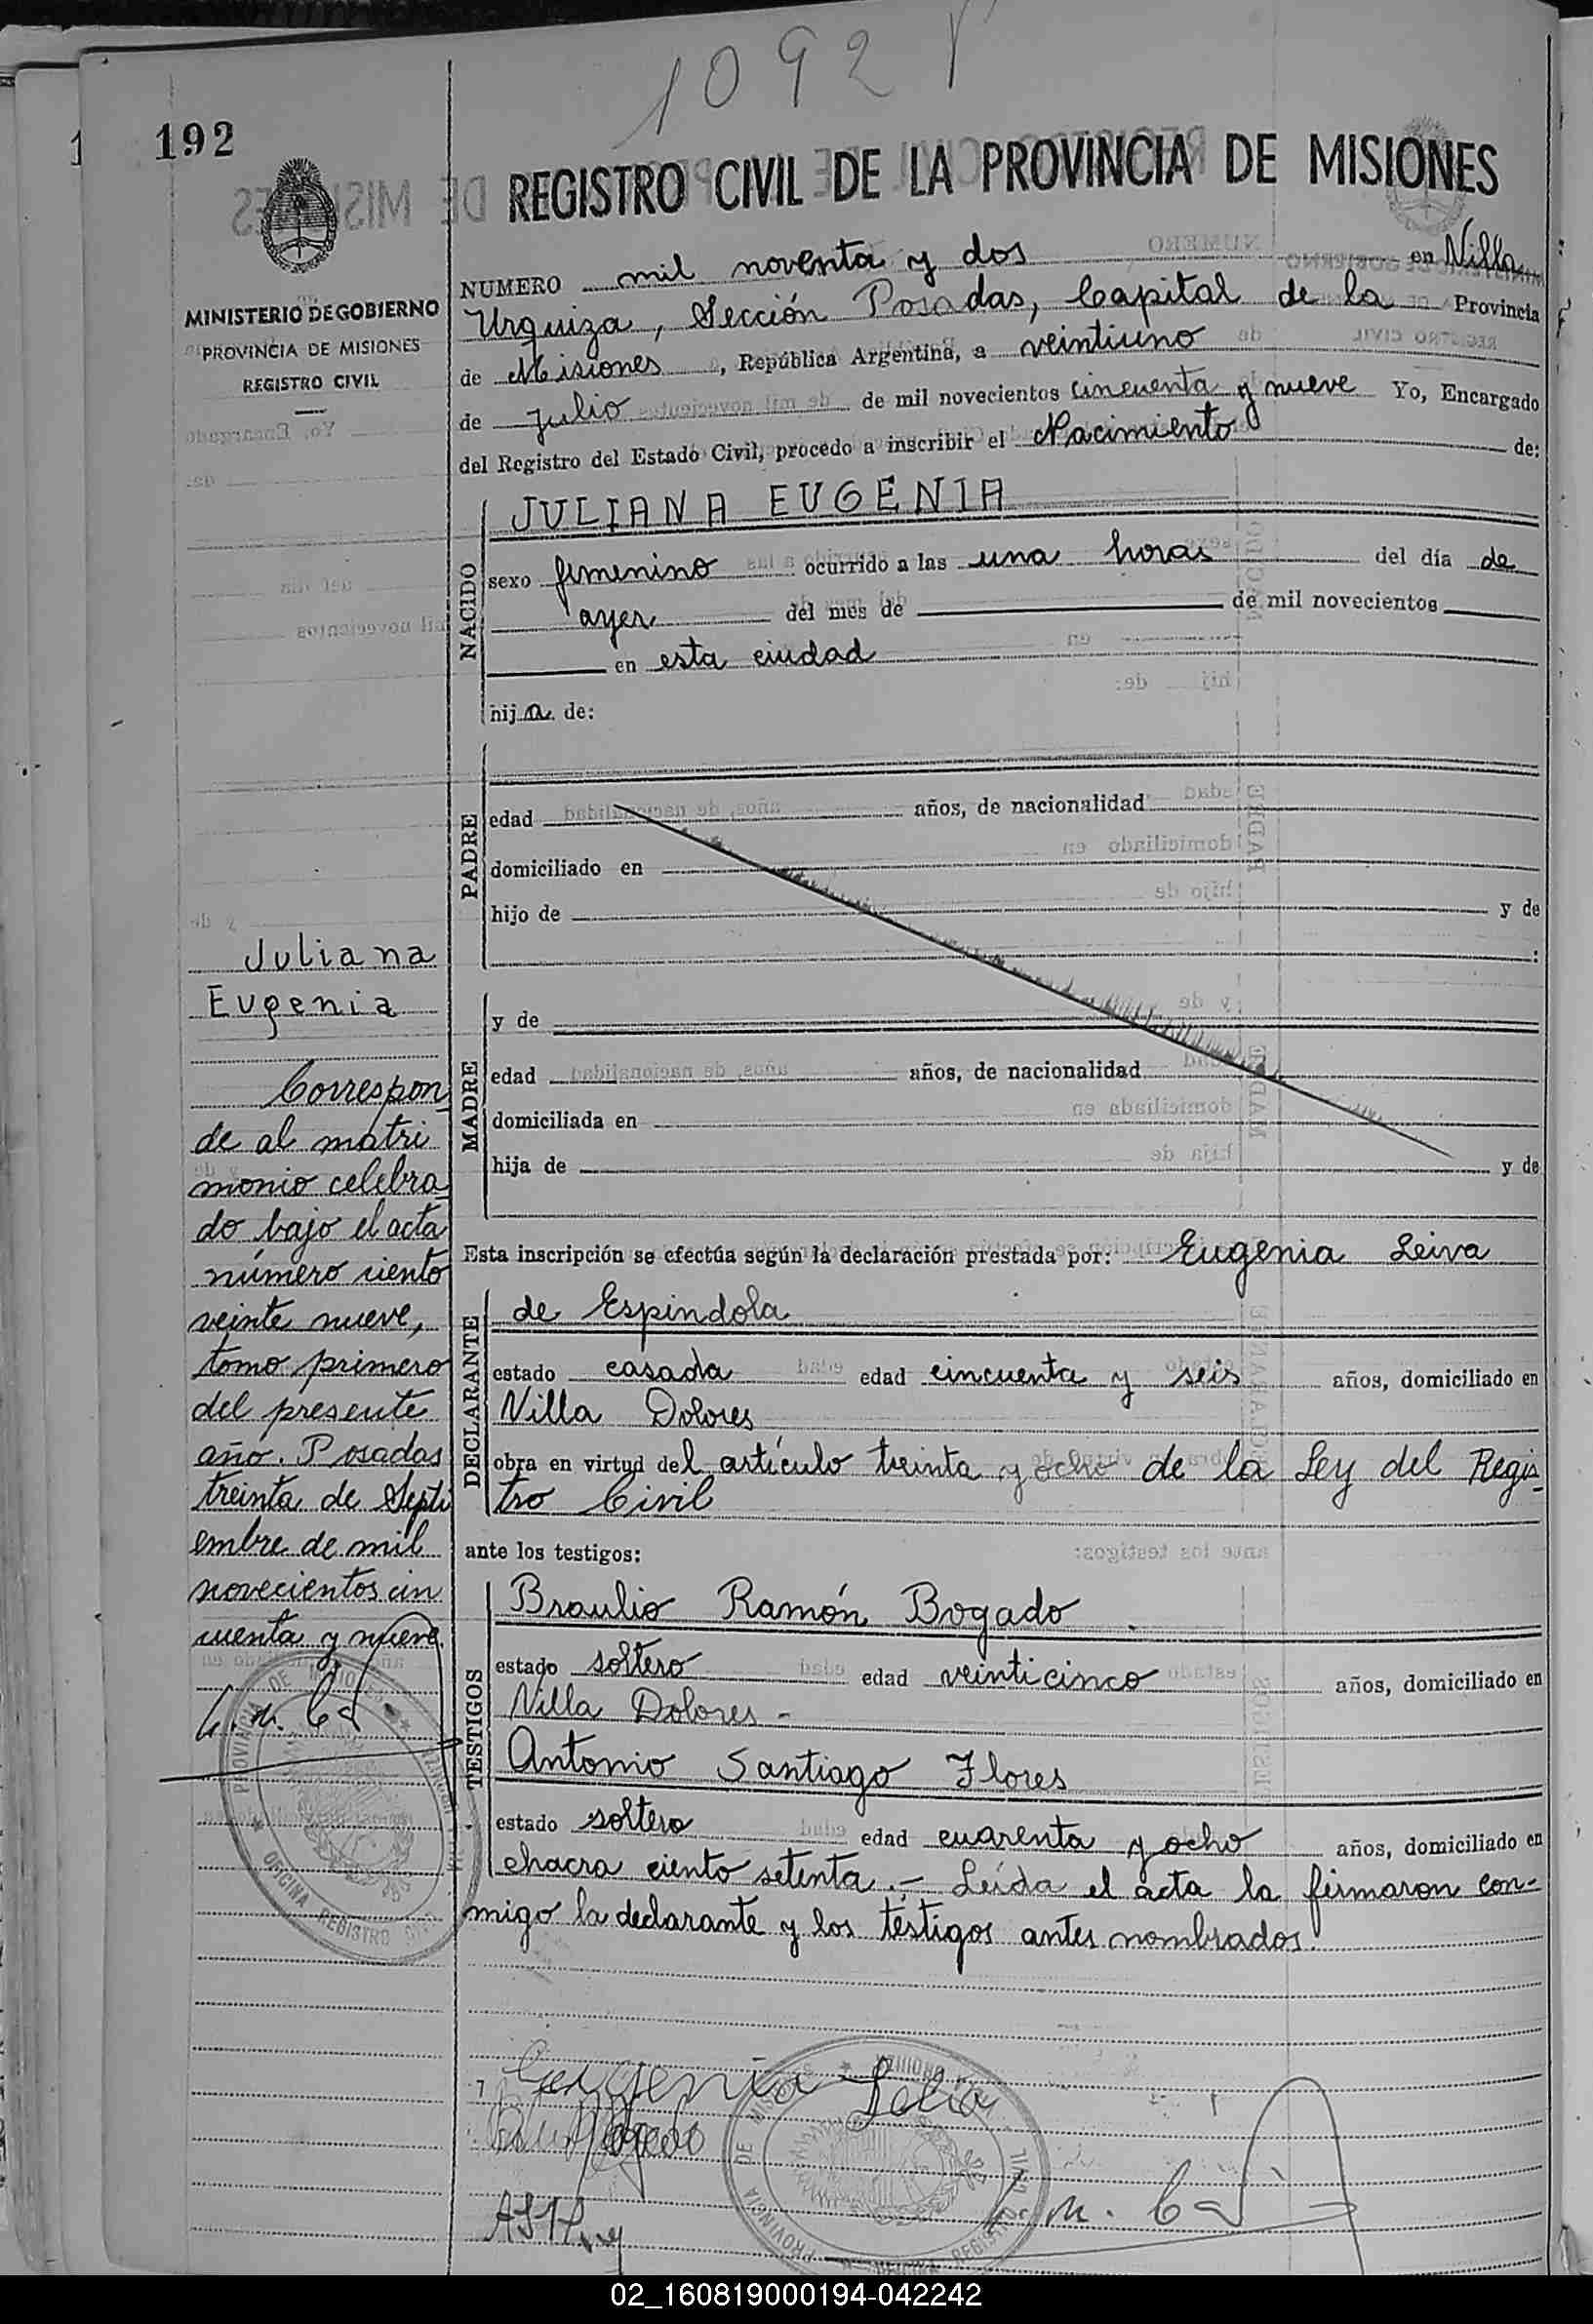 1092
192
REGISTRO CIVIL DE LA PROVINCIA DE MISIONES
MINISTERIO DE GOBIERNO
PROVINCIA DE MISIONES
REGISTRO CIVIL
NUMERO mil noventa y dos en Villa
Urquiza, Sección Posadas, Capital de la Provincia
de Misiones, República Argentina, a veintiuno
de Julio de mil novecientos cincuenta y nueve Yo, Encargado
del Registro del Estado Civil, procedo a inscribir el Nacimiento de:
NACIDO
JULIANA EUGENIA
sexo femenino ocurrido a las una horas del día de
ayer del mes de de mil novecientos
en esta ciudad
hija de:
PADRE
edad años, de nacionalidad
domiciliado en
hijo de y de
:
MADRE
y de
edad años, de nacionalidad
domiciliada en
hija de y de
Esta inscripción se efectúa según la declaración prestada por: Eugenia Leiva
DECLARANTE
de Espindola
estado casada edad cincuenta y seis años, domiciliado en
Villa Dolores
obra en virtud del artículo treinta y ocho de la Ley del Regis-
tro Civil
ante los testigos:
TESTIGOS
Braulio Ramón Bogado
estado soltero edad veinticinco años, domiciliado en
Villa Dolores -
Antonio Santiago Flores
estado soltero edad cuarenta y ocho años, domiciliado en
chacra ciento setenta.- Leída el acta la firmaron con-
migo la declarante y los testigos antes nombrados.
Juliana
Eugenia
Correspon
de al matri
monio celebra
do bajo el acta
número ciento
veinte nueve,
tomo primero
del presente
año. Posadas
treinta de Septi
embre de mil
novecientos cin
cuenta y nueve
PROVINCIA DE MISIONES
OFICINA REGISTRO CIVIL
Eugenia Leiva
PROVINCIA DE MISIONES
02_160819000194-042242